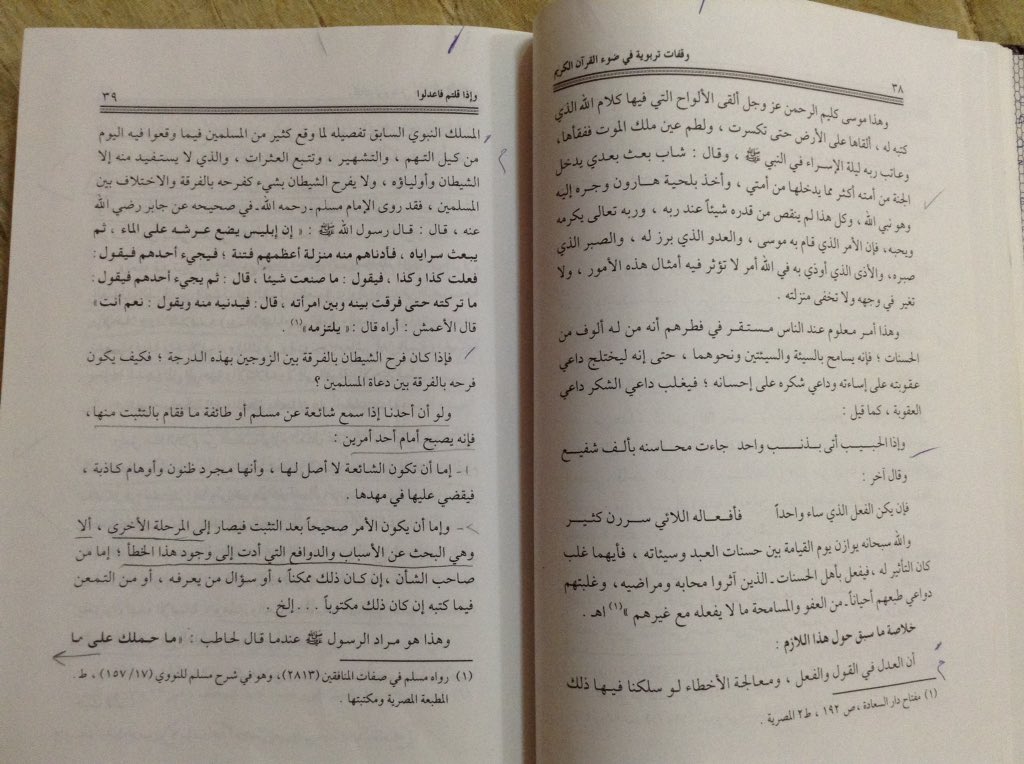 ٣٨
وقفات تربوية في ضوء القرآن الكريم
وهذا موسى كليم الرحمن عز وجل ألقى الألواح التي فيها كلام الله الذي
كتبه له ، ألقاها على الأرض حتى تكسرت ، ولطم عين ملك الموت ففقأها،
وعاتب ربه ليلة الإسراء في النبي ﷺ ، وقال : شاب بعث بعدي يدخل
الجنة من أمته أكثر مما يدخلها من أمتي ، وأخذ بلحية هارون وجره إليه
وهو نبي الله ، وكل هذا لم ينقص من قدره شيئاً عند ربه ، وربه تعالى يكرمه
ويحبه، فإن الأمر الذي قام به موسى ، والعدو الذي برز له ، والصبر الذي
صبره، والأذى الذي أوذي به في الله أمر لا تؤثر فيه أمثال هذه الأمور ، ولا
تغير في وجهه ولا تخفى منزلته .
وهذا أمر معلوم عند الناس مستقر في فطرهم أنه من له ألوف من
الحسنات ؛ فإنه يسامح بالسيئة والسيئتين ونحوهما ، حتى إنه ليختلج داعي
عقوبته على إساءته وداعي شكره على إحسانه ؛ فيغلب داعي الشكر داعي
العقوبة ، كما قيل :
وإذا الحبيب أتى بذنب واحد جاءت محاسنه بألف شفيع
وقال آخر :
فإن يكن الفعل الذي ساء واحداً فأفعاله اللائي سررن كثير
والله سبحانه يوازن يوم القيامة بين حسنات العبد وسيئاته ، فأيهما غلب
كان التأثير له ، فيفعل بأهل الحسنات ـ الذين آثروا محابه ومراضيه، وغلبتهم
دواعي طبعهم أحياناً ـ من العفو والمسامحة ما لا يفعله مع غيرهم »(١) اهـ .
خلاصة ما سبق حول هذا اللازم :
أن العدل في القول والفعل ، ومعالجة الأخطاء لو سلكنا فيها ذلك
(١) مفتاح دار السعادة ، ص ١٩٢ ، ط٢ المصرية .
وإذا قلتم فاعدلوا
٣٩
المسلك النبوي السابق تفصيله لما وقع كثير من المسلمين فيما وقعوا فيه اليوم
من كيل التهم ، والتشهير ، وتتبع العثرات ، والذي لا يستفيد منه إلا
الشيطان وأولياؤه ، ولا يفرح الشيطان بشيء كفرحه بالفرقة والاختلاف بين
المسلمين ، فقد روى الإمام مسلم ـ رحمه الله ـ في صحيحه عن جابر رضي الله
عنه ، قال : قال رسول الله ﷺ : « إن إبليس يضع عرشه على الماء ، ثم
يبعث سراياه ، فأدناهم منه منزلة أعظمهم فتنة ؛ فيجيء أحدهم فيقول :
فعلت كذا وكذا ، فيقول : ما صنعت شيئاً ، قال : ثم يجيء أحدهم فيقول :
ما تركته حتى فرقت بينه وبين امرأته ، قال : فيدنيه منه ويقول : نعم أنت»
قال الأعمش : أراه قال : « يلتزمه»(١) .
فإذا كان فرح الشيطان بالفرقة بين الزوجين بهذه الدرجة ؛ فكيف يكون
فرحه بالفرقة بين دعاة المسلمين ؟
ولو أن أحدنا إذا سمع شائعة عن مسلم أو طائفة ما فقام بالتثبت منها،
فإنه يصبح أمام أحد أمرين :
١ـ إما أن تكون الشائعة لا أصل لها ، وأنها مجرد ظنون وأوهام كاذبة ،
فيقضي عليها في مهدها .
٢ـ وإما أن يكون الأمر صحيحاً بعد التثبت فيصار إلى المرحلة الأخرى ، ألا
وهي البحث عن الأسباب والدوافع التي أدت إلى وجود هذا الخطأ ؛ إما من
صاحب الشأن ، إن كان ذلك ممكناً ، أو سؤال من يعرفه ، أو من التمعن
فيما كتبه إن كان ذلك مكتوباً . . . إلخ .
وهذا هو مراد الرسول ﷺ عندما قال لحاطب : «ما حملك على ما
(١) رواه مسلم في صفات المنافقين (٢٨١٣)، وهو في شرح مسلم للنووي (١٧/ ١٥٧) ، ط .
المطبعة المصرية ومكتبتها .